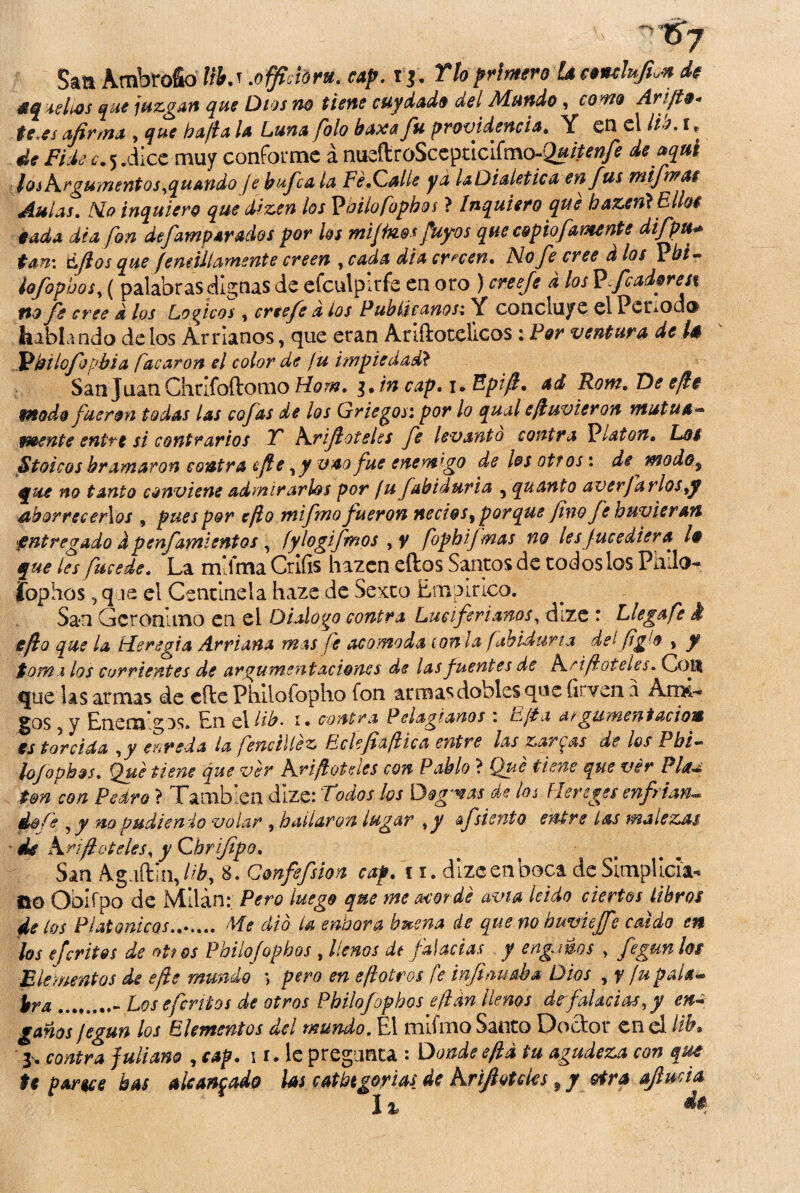 67
San Ambrosio lib.1.officioru. cap. 13. Y lo primero la conclusion de
aquellos que juzgan que Dios no tiene cuydado del Mundo, como Aristo-
teles afirma, que hasta la Luna solo baxa su providencia. Y en el lib. 1.
de Fide c.5.dice muy conforme à nuestroScepticismo-Quitense de aqui
losArgumentos,quando se busca la Fè.Calle yá laDialetica en sus mismas
Aulas. No inquiero que dizen los Philosophos? Inquiero què hazen? Ellos
cada dia son desamparados por los mismos suyos que copiosamente dispu-
tan: Estos que sensillamente creen, cada dia crecen. No se cree á los Phi-
losophos, ( palabras dignas de esculpirse en oro ) creese á los Pescadores:
no se cree á los Logicos, creese á los Publicanos: Y concluye el Periodo
hablando de los Arrianos, que eran Aristotelicos: Por ventura de la
Philosophia sacaron el color de su impiedad?
San Juan Chrisostomo Hom. 3. in cap. 1. Epist. ad Rom. De este
modo fueron todas las cosas de los Griegos: por lo qual estuvieron mutua-
mente entre si contrarios Y Aristoteles se levantò contra Platon. Los
Stoicos bramaron contra este, y uno fue enemigo de los otros: de modo,
que no tanto conviene admirarlos por su sabiduria, quanto aversarlos,y
aborrecerlos, pues por esto mismo fueron necios, porque sino se huvieran
entregado à pensamientos, sylogismos, y sophismas no les sucediera lo
que les sucede. La misma Crisis hazen estos Santos de todos los Philo-
sophos, que el Centinela haze de Sexto Empirico.
San Geronimo en el Dialogo contra Luciferianos, dize: Llegase á
esto que la Heregia Arriana mas se acomoda con la sabiduria del siglo, y
toma los corrientes de argumentaciones de las fuentes de Aristoteles. Con
que las armas de este Philosopho son armas dobles que sirven à Ami-
gos, y Enemigos. En el lib. 1. contra Pelagianos: Esta argumentacion
es torcida, y enreda la sencillèz Eclesiastica entre las zarças de los Phi-
losophos. Què tiene que vèr Aristoteles con Pablo? Què tiene que vèr Pla-
ton con Pedro? Tambien dize: Todos los Dogmas de los Hereges enfrian-
dose, y no pudiendo volar, hallaron lugar, y assiento entre las malezas
de Aristoteles, y Chrisipo.
San Agustin, lib, 8. Confession cap. 11. dize en boca de Simplicia-
no Obispo de Milàn: Pero luego que me acordè avia leido ciertos libros
de los Platonicos....... Me diò la enhora buena de que no huviesse caido en
los escritos de otros Philosophos, llenos de falacias, y engaños, segun los
Elementos de este mundo; pero en estotros se insinuaba Dios, y su pala-
bra ........- Los escritos de otros Philosophos estàn llenos de falacias, y en-
gaños segun los Elementos del mundo. El mismo Santo Doctor en el lib.
3. contra Juliano, cap. 11. le pregunta: Donde està tu agudeza con que
te parece has alcançado las cathegorias de Aristoteles, y otra astucia
I2 de